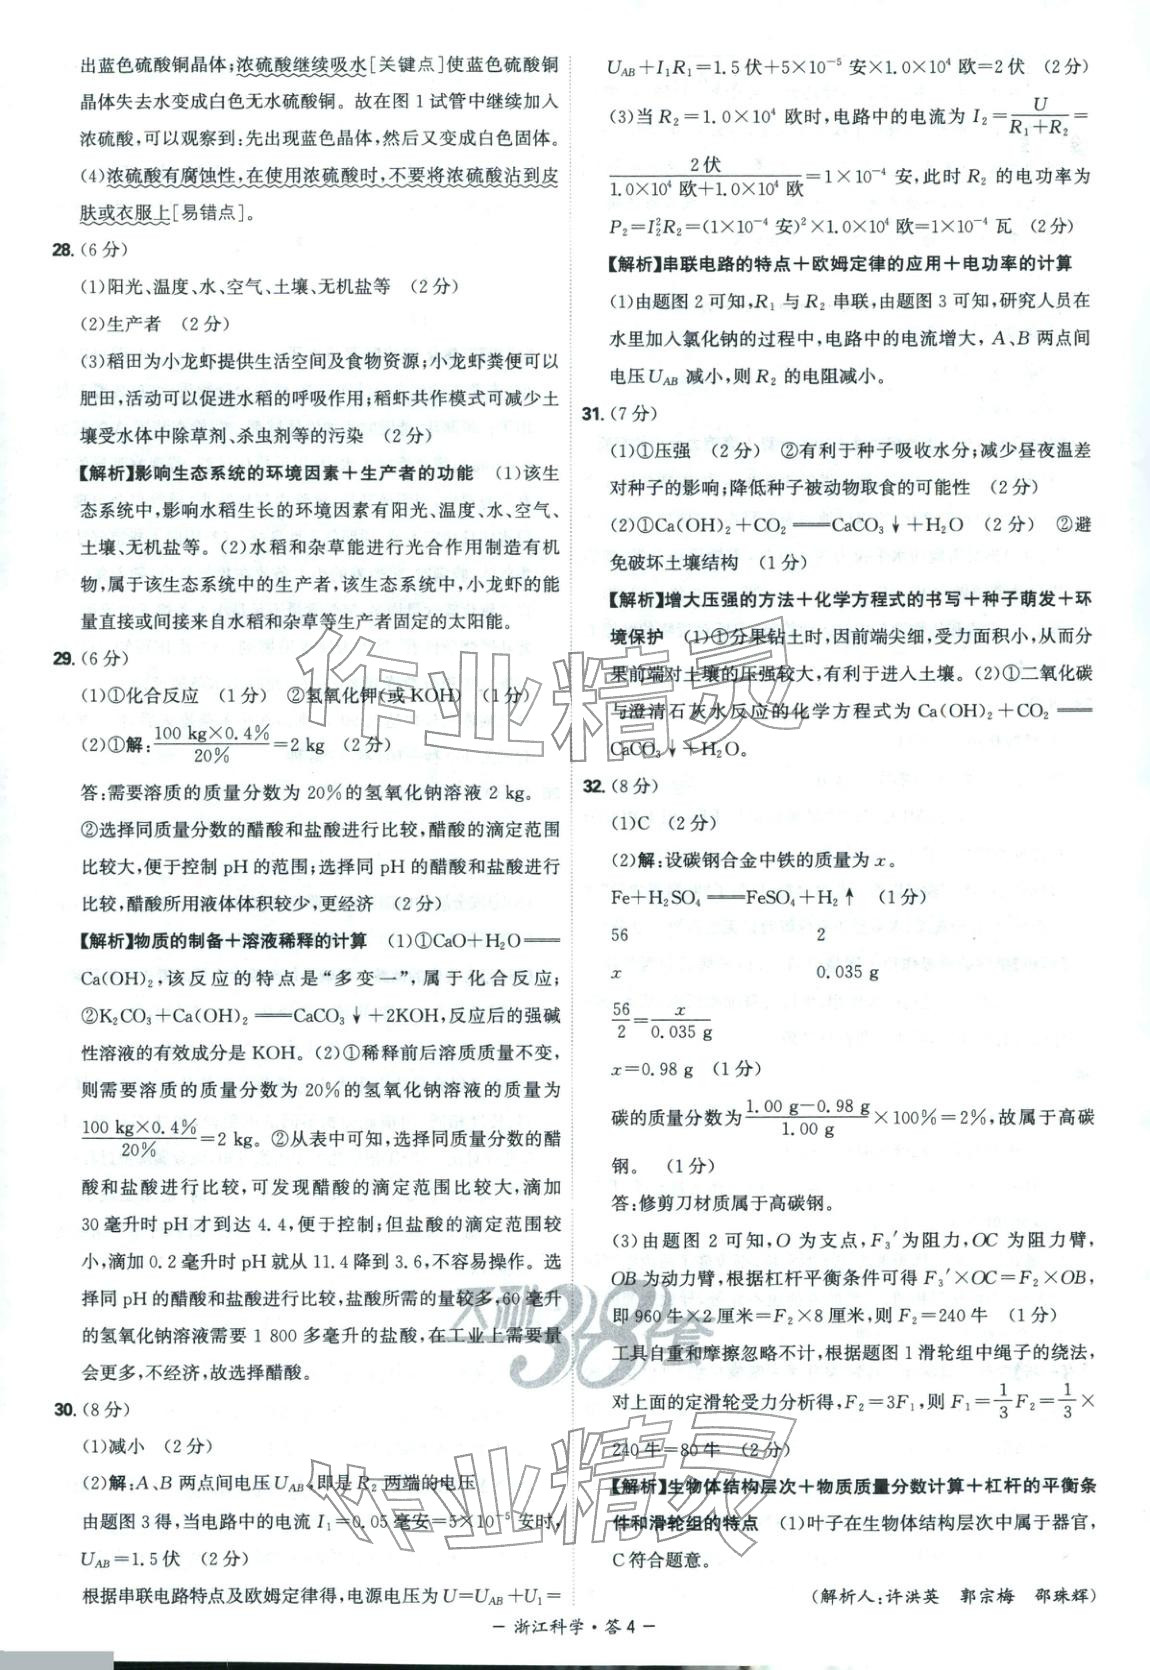 出蓝色硫酸铜晶体;浓硫酸继续吸水[关键点]使蓝色硫酸铜
晶体失去水变成白色无水硫酸铜。故在图1试管中继续加入
浓硫酸,可以观察到:先出现蓝色晶体,然后又变成白色固体。
(4)浓硫酸有腐蚀性,在使用浓硫酸时,不要将浓硫酸沾到皮
肤或衣服上[易错点]。
28.(6分)
(1)阳光、温度、水、空气、土壤、无机盐等 (2分)
(2)生产者 (2分)
(3)稻田为小龙虾提供生活空间及食物资源;小龙虾粪便可以
肥田,活动可以促进水稻的呼吸作用;稻虾共作模式可减少土
壤受水体中除草剂、杀虫剂等的污染 (2分)
【解析】影响生态系统的环境因素+生产者的功能 (1)该生
态系统中,影响水稻生长的环境因素有阳光、温度、水、空气、
土壤、无机盐等。(2)水稻和杂草能进行光合作用制造有机
物,属于该生态系统中的生产者,该生态系统中,小龙虾的能
量直接或间接来自水稻和杂草等生产者固定的太阳能。
29.(6分)
(1)①化合反应 (1分) ②氢氧化钾(或KOH) (1分)
(2)①解:100 kg×0.4%/20%=2 kg (2分)
答:需要溶质的质量分数为20%的氢氧化钠溶液2 kg。
②选择同质量分数的醋酸和盐酸进行比较,醋酸的滴定范围
比较大,便于控制pH的范围;选择同pH的醋酸和盐酸进行
比较,醋酸所用液体体积较少,更经济 (2分)
【解析】物质的制备+溶液稀释的计算 (1)①CaO+H₂O══
Ca(OH)₂,该反应的特点是“多变一”,属于化合反应;
②K₂CO₃+Ca(OH)₂══CaCO₃↓+2KOH,反应后的强碱
性溶液的有效成分是KOH。(2)①稀释前后溶质质量不变,
则需要溶质的质量分数为20%的氢氧化钠溶液的质量为
100 kg×0.4%/20%=2 kg。②从表中可知,选择同质量分数的醋
酸和盐酸进行比较,可发现醋酸的滴定范围比较大,滴加
30毫升时pH才到达4.4,便于控制;但盐酸的滴定范围较
小,滴加0.2毫升时pH就从11.4降到3.6,不容易操作。选
择同pH的醋酸和盐酸进行比较,盐酸所需的量较多,60毫升
的氢氧化钠溶液需要1 800多毫升的盐酸,在工业上需要量
会更多,不经济,故选择醋酸。
30.(8分)
(1)减小 (2分)
(2)解:A、B两点间电压U_AB,即是R₂两端的电压
由题图3得,当电路中的电流I₁=0.05毫安=5×10⁻⁵安时,
U_AB=1.5伏 (2分)
根据串联电路特点及欧姆定律得,电源电压为U=U_AB+U₁=
U_AB+I₁R₁=1.5伏+5×10⁻⁵安×1.0×10⁴欧=2伏 (2分)
(3)当R₂=1.0×10⁴欧时,电路中的电流为I₂=U/(R₁+R₂)=
2伏/(1.0×10⁴欧+1.0×10⁴欧)=1×10⁻⁴安,此时R₂的电功率为
P₂=I₂²R₂=(1×10⁻⁴安)²×1.0×10⁴欧=1×10⁻⁴瓦 (2分)
【解析】串联电路的特点+欧姆定律的应用+电功率的计算
(1)由题图2可知,R₁与R₂串联,由题图3可知,研究人员在
水里加入氯化钠的过程中,电路中的电流增大,A、B两点间
电压U_AB减小,则R₂的电阻减小。
31.(7分)
(1)①压强 (2分) ②有利于种子吸收水分;减少昼夜温差
对种子的影响;降低种子被动物取食的可能性 (2分)
(2)①Ca(OH)₂+CO₂══CaCO₃↓+H₂O (2分) ②避
免破坏土壤结构 (1分)
【解析】增大压强的方法+化学方程式的书写+种子萌发+环
境保护 (1)①分果钻土时,因前端尖细,受力面积小,从而分
果前端对土壤的压强较大,有利于进入土壤。(2)①二氧化碳
与澄清石灰水反应的化学方程式为Ca(OH)₂+CO₂══
CaCO₃↓+H₂O。
32.(8分)
(1)C (2分)
(2)解:设碳钢合金中铁的质量为x。
Fe+H₂SO₄══FeSO₄+H₂↑ (1分)
56 2
x 0.035 g
56/2=x/0.035 g
x=0.98 g (1分)
碳的质量分数为(1.00 g-0.98 g)/1.00 g×100%=2%,故属于高碳
钢。 (1分)
答:修剪刀材质属于高碳钢。
(3)由题图2可知,O为支点,F₃′为阻力,OC为阻力臂,
OB为动力臂,根据杠杆平衡条件可得F₃′×OC=F₂×OB,
即960牛×2厘米=F₂×8厘米,则F₂=240牛 (1分)
工具自重和摩擦忽略不计,根据题图1滑轮组中绳子的绕法,
对上面的定滑轮受力分析得,F₂=3F₁,则F₁=1/3F₂=1/3×
240牛=80牛 (2分)
【解析】生物体结构层次+物质质量分数计算+杠杆的平衡条
件和滑轮组的特点 (1)叶子在生物体结构层次中属于器官,
C符合题意。
(解析人:许洪英 郭宗梅 邵珠辉)
－浙江科学·答4－
作业精灵
天利38套
作业精灵